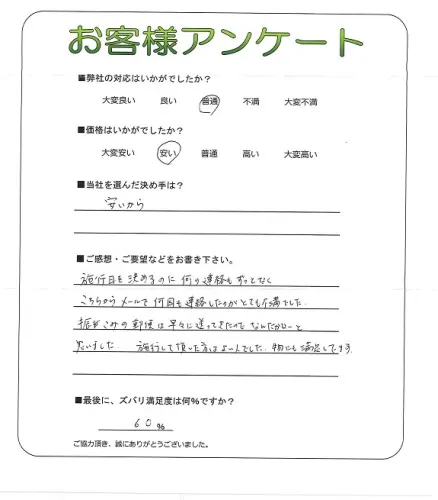 お客様アンケート
■弊社の対応はいかがでしたか？
大変良い 良い 普通 不満 大変不満
■価格はいかがでしたか？
大変安い 安い 普通 高い 大変高い
■当社を選んだ決め手は？
安いから
■ご感想・ご要望などをお書き下さい。
施行日を決めるのに何の連絡もずっとなく
こちらからメールで何回も連絡したのがとても不満でした.
振りこみの郵便は早々に送ってきたので なんだかなーと
思いました. 施行して頂いた方はよい人でした. 物にも満足してます.
■最後に、ズバリ満足度は何%ですか？
60%
ご協力頂き、誠にありがとうございました。